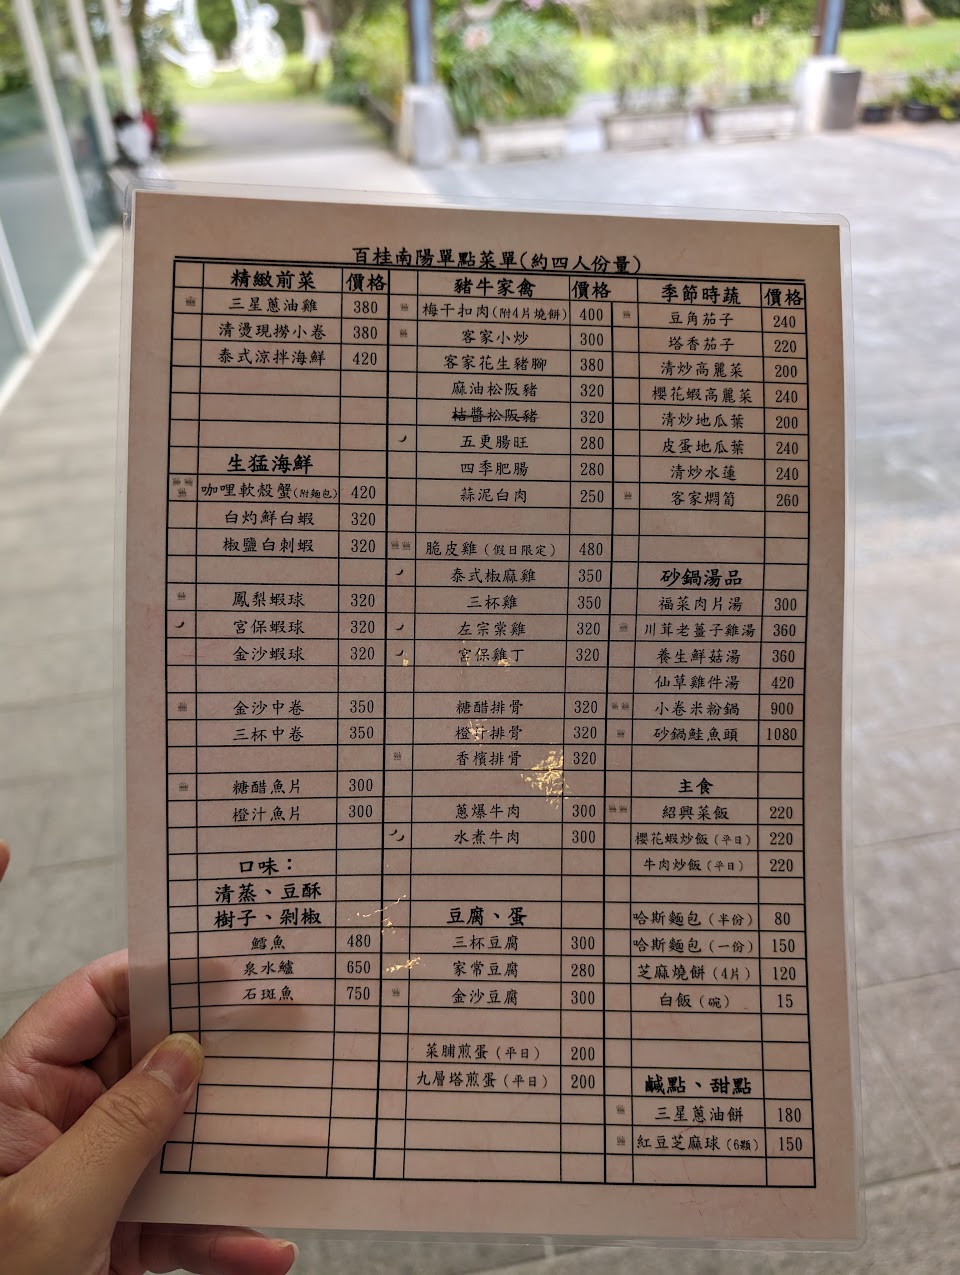 百桂南陽單點菜單(約四人份量)
精緻前菜 價格
三星蔥油雞 380
清燙現撈小卷 380
泰式涼拌海鮮 420
生猛海鮮
咖哩軟殼蟹(附麵包) 420
白灼鮮白蝦 320
椒鹽白刺蝦 320
鳳梨蝦球 320
宮保蝦球 320
金沙蝦球 320
金沙中卷 350
三杯中卷 350
糖醋魚片 300
橙汁魚片 300
口味：
清蒸、豆酥
樹子、剁椒
鱈魚 480
泉水鱸 650
石斑魚 750
豬牛家禽 價格
梅干扣肉(附4片燒餅) 400
客家小炒 300
客家花生豬腳 380
麻油松阪豬 320
桔醬松阪豬 320
五更腸旺 280
四季肥腸 280
蒜泥白肉 250
脆皮雞(假日限定) 480
泰式椒麻雞 350
三杯雞 350
左宗棠雞 320
宮保雞丁 320
糖醋排骨 320
橙汁排骨 320
香檳排骨 320
蔥爆牛肉 300
水煮牛肉 300
豆腐、蛋
三杯豆腐 300
家常豆腐 280
金沙豆腐 300
菜脯煎蛋(平日) 200
九層塔煎蛋(平日) 200
季節時蔬 價格
豆角茄子 240
塔香茄子 220
清炒高麗菜 200
櫻花蝦高麗菜 240
清炒地瓜葉 200
皮蛋地瓜葉 240
清炒水蓮 240
客家燜筍 260
砂鍋湯品
福菜肉片湯 300
川茸老薑子雞湯 360
養生鮮菇湯 360
仙草雞件湯 420
小卷米粉鍋 900
砂鍋鮭魚頭 1080
主食
紹興菜飯 220
櫻花蝦炒飯(平日) 220
牛肉炒飯(平日) 220
哈斯麵包(半份) 80
哈斯麵包(一份) 150
芝麻燒餅(4片) 120
白飯(碗) 15
鹹點、甜點
三星蔥油餅 180
紅豆芝麻球(6顆) 150